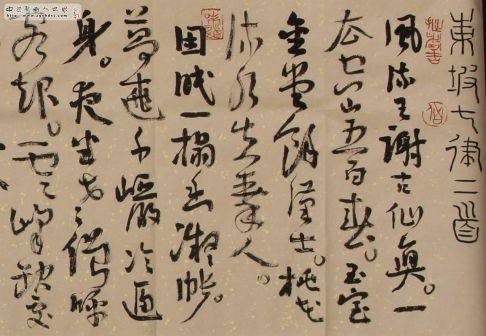 東坡七律二首
風流王謝古仙真。一
去空山五百春。玉室
金堂餘漢士。桃花
流水失秦人。
困眠一榻香凝帳。
夢遶千巖冷逼
身。夜半老僧呼
客起。雲峰缺處